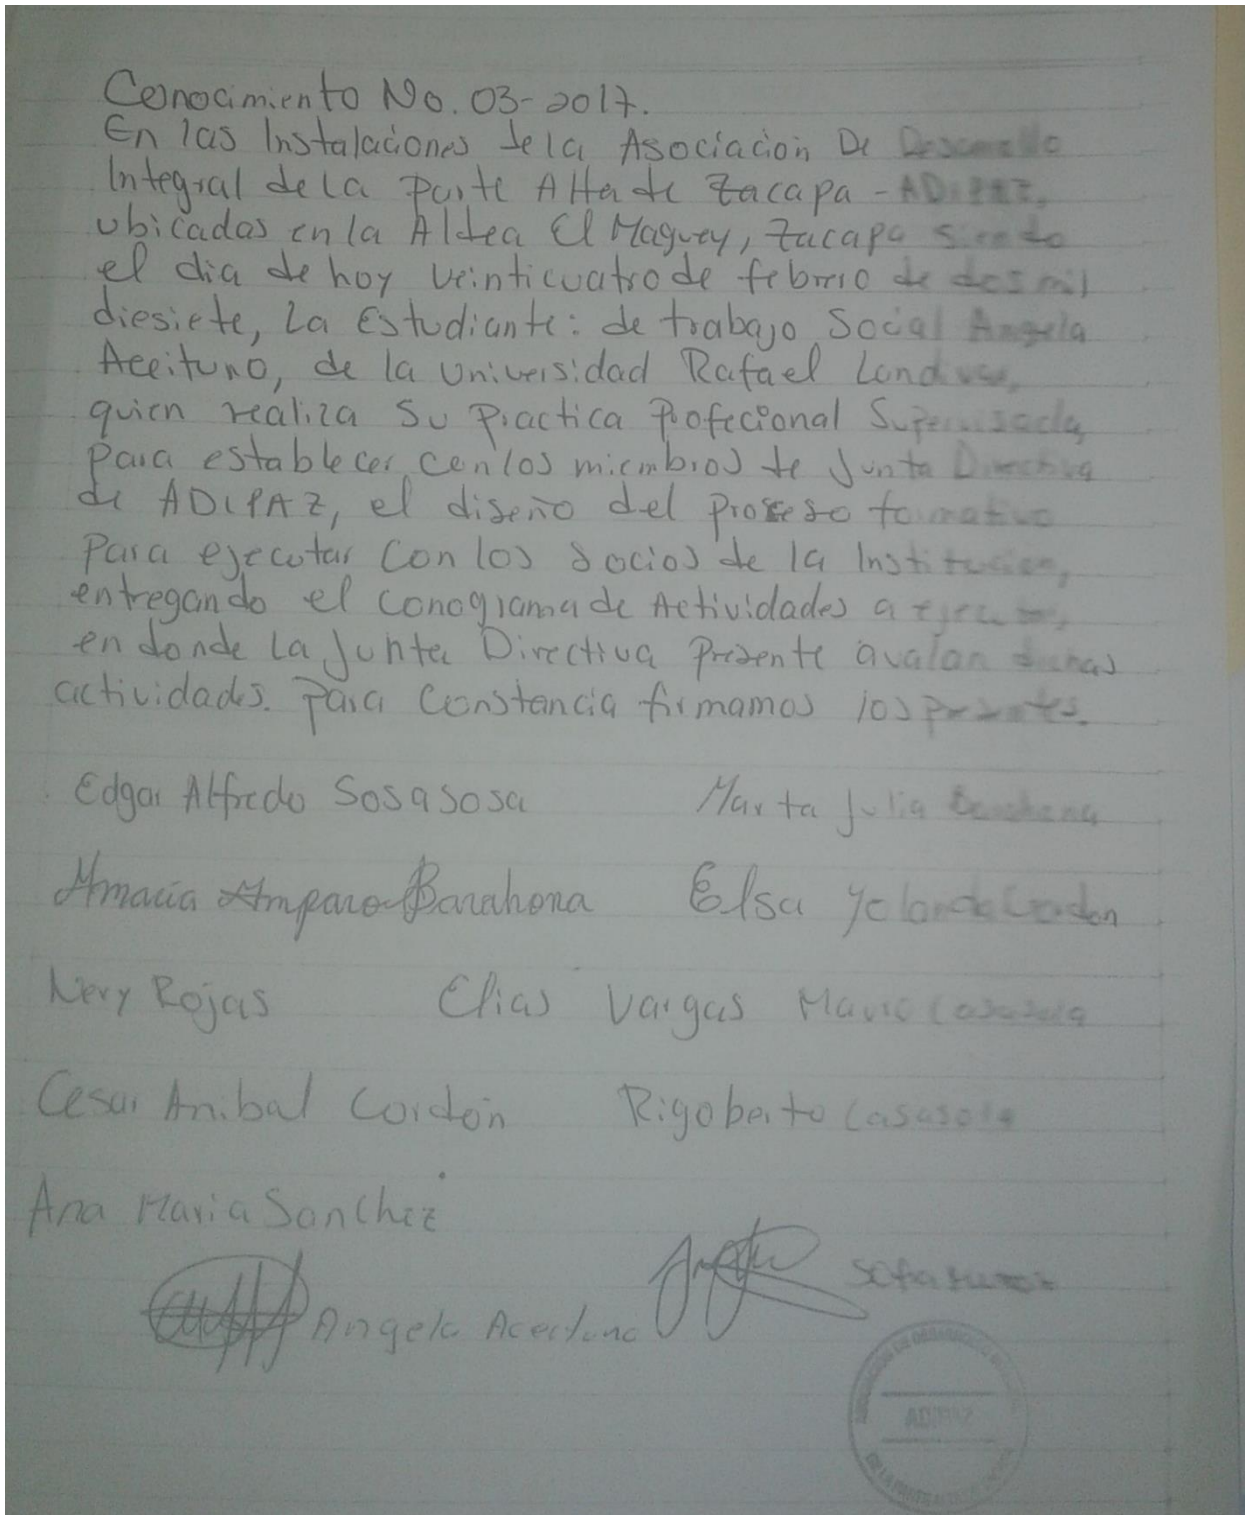 Conocimiento No. 03-2017.
En las Instalaciones de la Asociacion De Desarrollo
Integral de la parte Alta de Zacapa - ADIPAZ,
ubicadas en la Aldea El Maguey, Zacapa siendo
el dia de hoy veinticuatro de febrero de dos mil
diesiete, La Estudiante: de trabajo Social Angela
Aceituno, de la Universidad Rafael Landivar,
quien realiza su practica Profecional Supervisada,
para establecer con los miembros de Junta Directiva
de ADIPAZ, el diseño del proceso formativo
para ejecutar con los socios de la Institucion,
entregando el conograma de Actividades a ejecutar,
en donde La Junta Directiva presente avalan dichas
actividades. para constancia firmamos los presentes.
Edgar Alfredo Sosa sosa Marta Julia Barahona
Amparo Barahona Elsa Yolanda Cordon
Nery Rojas Elias Vargas Mario Casasola
Cesar Anibal Cordón Rigoberto Casasola
Ana Maria Sanchez
Angela
ADIPAZ